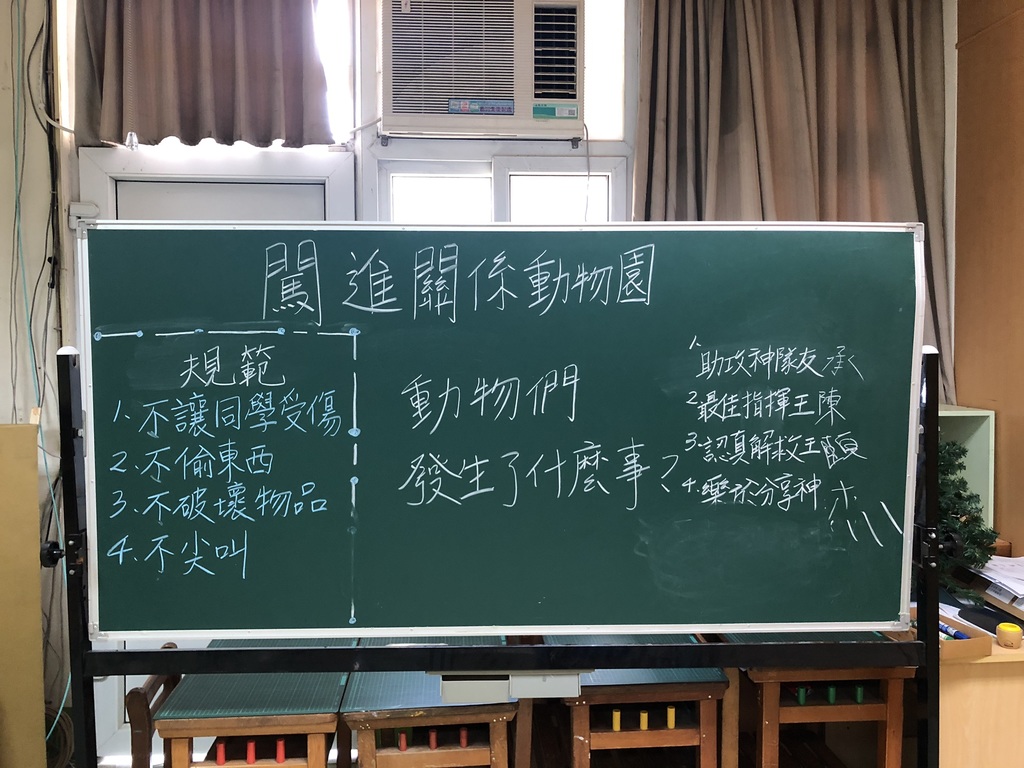 闖進關係動物園
規範
1. 不讓同學受傷
2. 不偷東西
3. 不破壞物品
4. 不尖叫
動物們
發生了什麼事?
1. 助攻神隊友 承
2. 最佳指揮王陳
3. 認真解救王
4. 樂於分享神